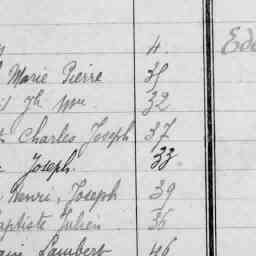 4.
Marie Pierre 35
Jh Mre 32
Charles Joseph 37
Joseph. 33
Henri, Joseph 39
Baptiste Julien 36
Lambert 46